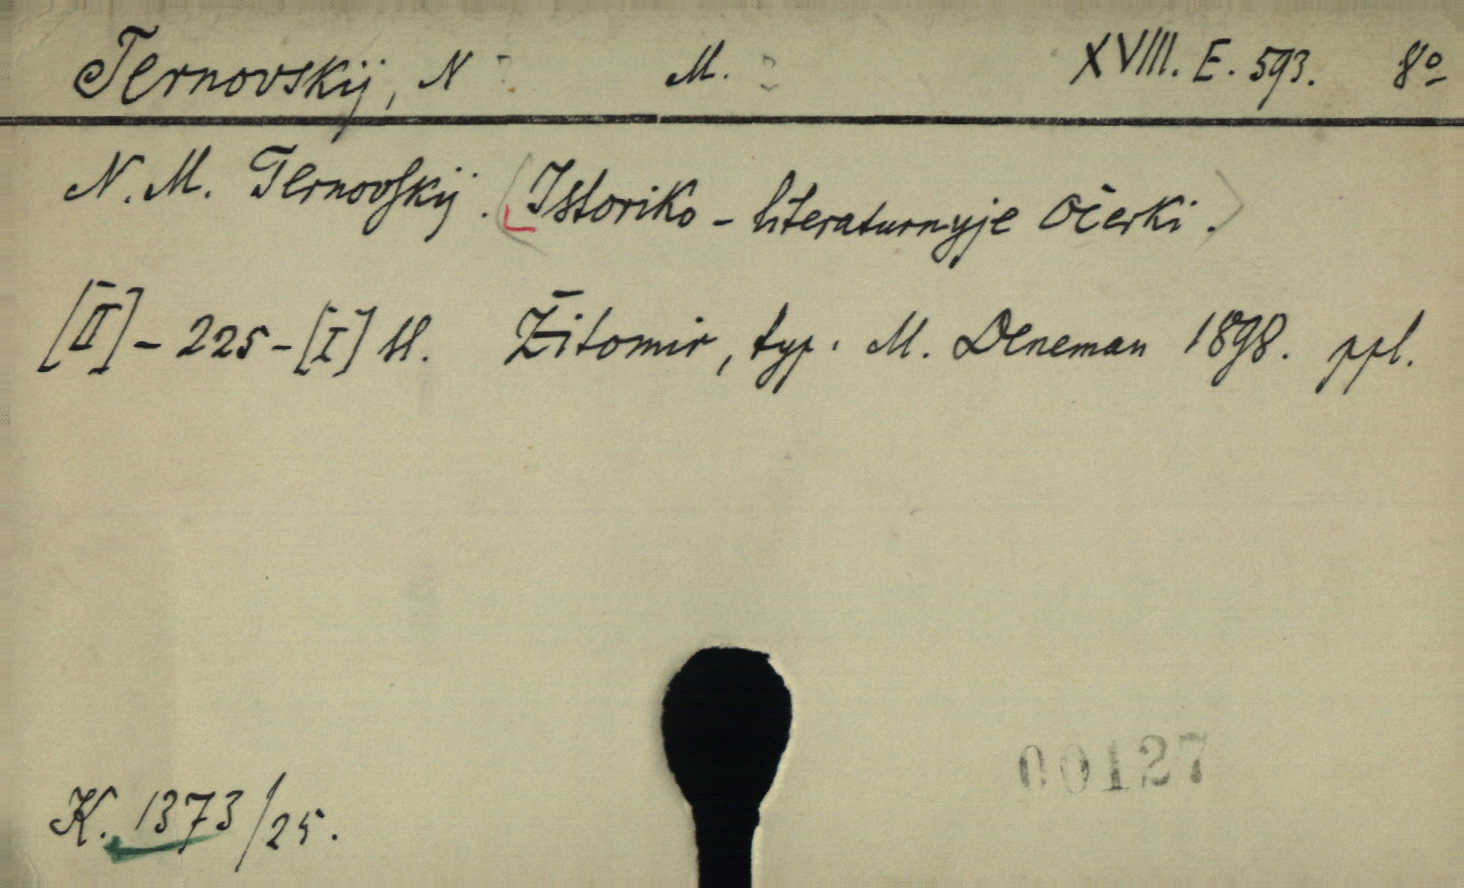 Ternovskij, N : M. : XVIII. E. 593. 8º
N. M. Ternovskij. (Istoriko-literaturnyje očerki.)
[II] - 225 - [I] ll. Žitomir, typ. M. Deneman 1898. ppl.
00127
K. 1373/25.